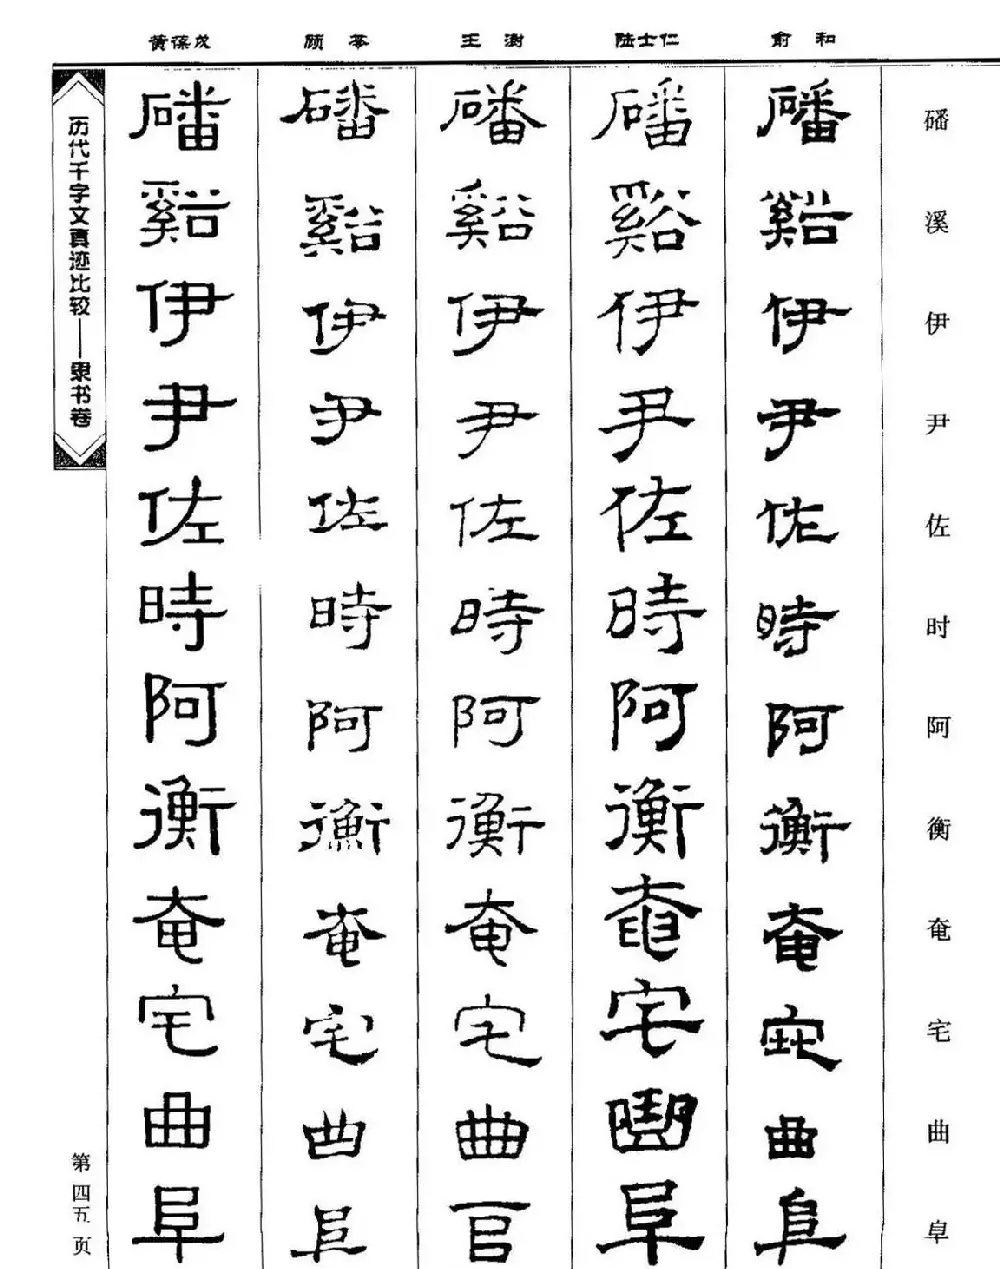 磻溪伊尹佐时阿衡奄宅曲阜
俞和
磻谿伊尹佐時阿衡奄宅曲阜
陆士仁
磻谿伊尹佐時阿衡奄宅曲阜
王澍
磻谿伊尹佐時阿衡奄宅曲阜
顾苓
磻谿伊尹佐時阿衡奄宅曲阜
黄葆戉
磻谿伊尹佐時阿衡奄宅曲阜
历代千字文真迹比较——隶书卷
第四五页